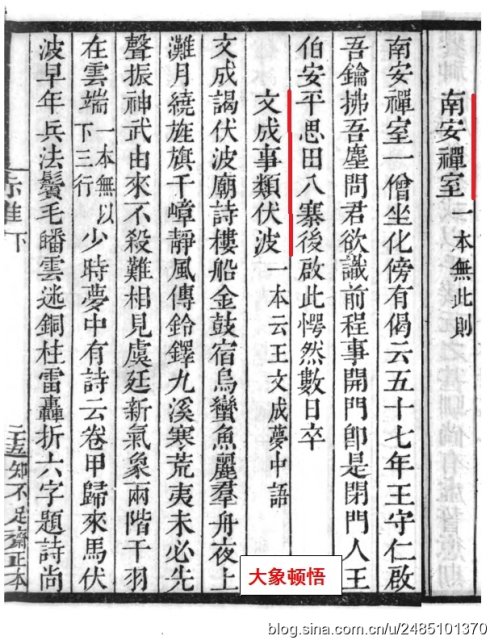 南安禪室一本無此則
南安禪室一僧坐化傍有偈云五十七年王守仁啟
吾鑰拂吾塵問君欲識前程事開門卽是閉門人王
伯安平思田八寨後啟此愕然數日卒
文成事類伏波一本云王文成夢中語
文成謁伏波廟詩樓船金鼓宿烏蠻魚麗羣舟夜上
灘月繞旌旗千嶂靜風傳鈴鐸九溪寒荒夷未必先
聲振神武由來不殺難相見虞廷新氣象兩階干羽
在雲端一本無以下三行少時夢中有詩云卷甲歸來馬伏
波早年兵法鬢毛皤雲迷銅柱雷轟折六字題詩尚
下
知不足齋正本
大象顿悟
blog.sina.com.cn/u/2485101370